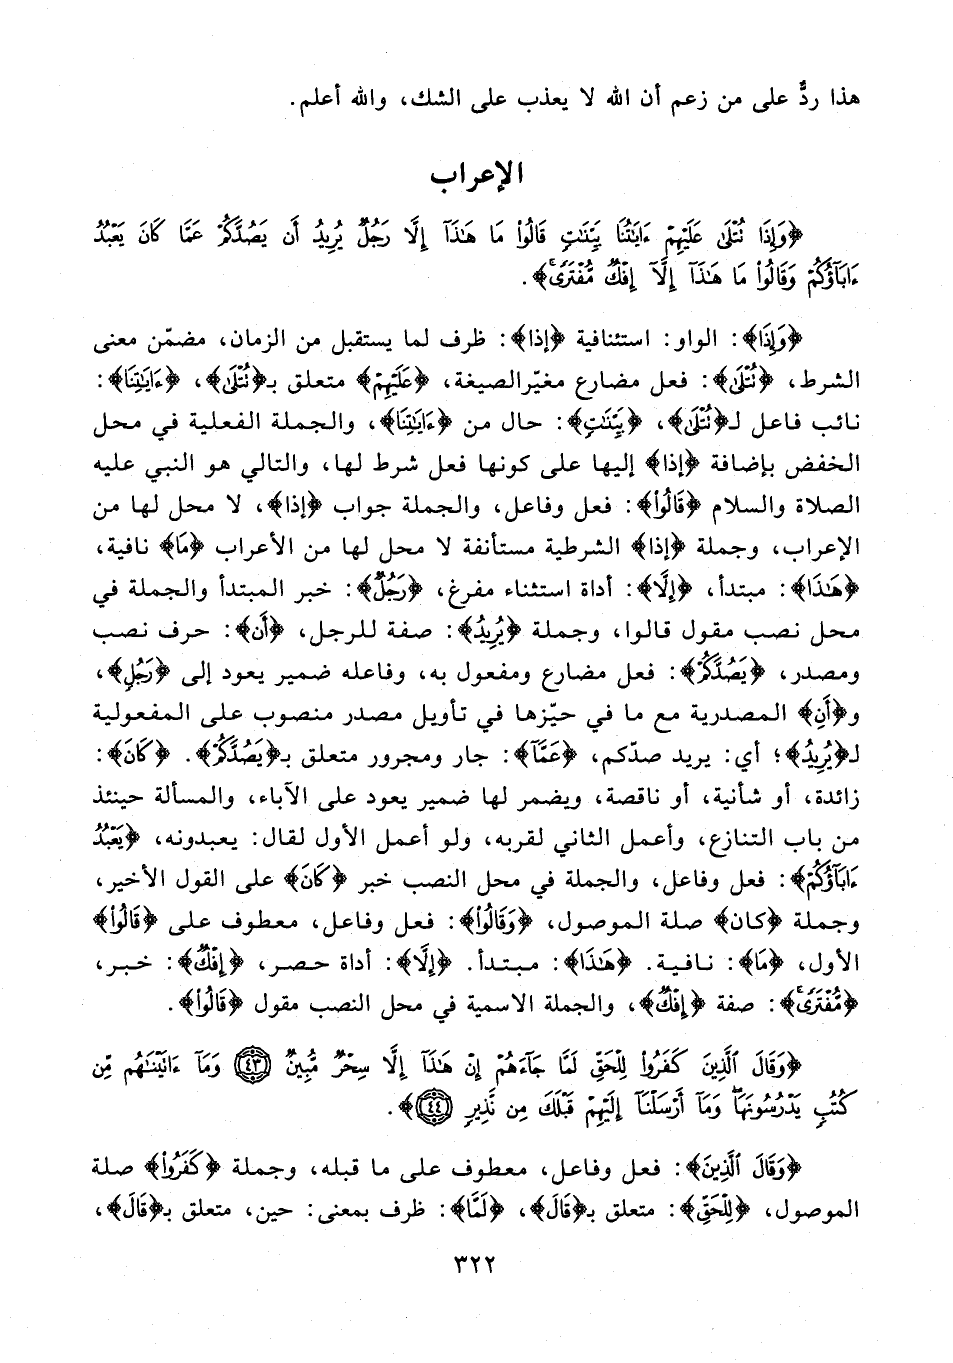 هذا ردٌّ على من زعم أن الله لا يعذب على الشك، والله أعلم.
الإعراب
﴿وَإِذَا تُتْلَىٰ عَلَيْهِمْ ءَايَٰتُنَا بَيِّنَٰتٍ قَالُوا۟ مَا هَٰذَآ إِلَّا رَجُلٌ يُرِيدُ أَن يَصُدَّكُمْ عَمَّا كَانَ يَعْبُدُ
ءَابَآؤُكُمْ وَقَالُوا۟ مَا هَٰذَآ إِلَّآ إِفْكٌ مُّفْتَرًى ۚ﴾.
﴿وَإِذَا﴾: الواو: استئنافية ﴿إذا﴾: ظرف لما يستقبل من الزمان، مضمّن معنى
الشرط، ﴿تُتْلَىٰ﴾: فعل مضارع مغيّر الصيغة، ﴿عَلَيْهِمْ﴾ متعلق بـ﴿تُتْلَىٰ﴾، ﴿ءَايَٰتِنَا﴾:
نائب فاعل لـ﴿تُتْلَىٰ﴾، ﴿بَيِّنَٰتٍ﴾: حال من ﴿ءَايَٰتِنَا﴾، والجملة الفعلية في محل
الخفض بإضافة ﴿إذا﴾ إليها على كونها فعل شرط لها، والتالي هو النبي عليه
الصلاة والسلام ﴿قَالُوا۟﴾: فعل وفاعل، والجملة جواب ﴿إذا﴾، لا محل لها من
الإعراب، وجملة ﴿إذا﴾ الشرطية مستأنفة لا محل لها من الأعراب ﴿مَا﴾ نافية،
﴿هَٰذَا﴾: مبتدأ، ﴿إِلَّا﴾: أداة استثناء مفرغ، ﴿رَجُلٌ﴾: خبر المبتدأ والجملة في
محل نصب مقول قالوا، وجملة ﴿يُرِيدُ﴾: صفة للرجل، ﴿أَن﴾: حرف نصب
ومصدر، ﴿يَصُدَّكُمْ﴾: فعل مضارع ومفعول به، وفاعله ضمير يعود إلى ﴿رَجُلٍ﴾،
و﴿أَنِ﴾ المصدرية مع ما في حيّزها في تأويل مصدر منصوب على المفعولية
لـ﴿يُرِيدُ﴾؛ أي: يريد صدّكم، ﴿عَمَّآ﴾: جار ومجرور متعلق بـ﴿يَصُدَّكُمْ﴾. ﴿كَانَ﴾:
زائدة، أو شأنية، أو ناقصة، ويضمر لها ضمير يعود على الآباء، والمسألة حينئذ
من باب التنازع، وأعمل الثاني لقربه، ولو أعمل الأول لقال: يعبدونه، ﴿يَعْبُدُ
ءَابَآؤُكُمْ﴾: فعل وفاعل، والجملة في محل النصب خبر ﴿كَانَ﴾ على القول الأخير،
وجملة ﴿كان﴾ صلة الموصول، ﴿وَقَالُوا۟﴾: فعل وفاعل، معطوف على ﴿قَالُوا۟﴾
الأول، ﴿مَا﴾: نافية. ﴿هَٰذَا﴾: مبتدأ. ﴿إِلَّا﴾: أداة حصر، ﴿إِفْكٌ﴾: خبر،
﴿مُّفْتَرًى ۚ﴾: صفة ﴿إِفْكٌ﴾، والجملة الاسمية في محل النصب مقول ﴿قَالُوا۟﴾.
﴿وَقَالَ ٱلَّذِينَ كَفَرُوا۟ لِلْحَقِّ لَمَّا جَآءَهُمْ إِنْ هَٰذَآ إِلَّا سِحْرٌ مُّبِينٌ ٤٣ وَمَآ ءَاتَيْنَٰهُم مِّن
كُتُبٍ يَدْرُسُونَهَا ۖ وَمَآ أَرْسَلْنَآ إِلَيْهِمْ قَبْلَكَ مِن نَّذِيرٍ ٤٤﴾.
﴿وَقَالَ ٱلَّذِينَ﴾: فعل وفاعل، معطوف على ما قبله، وجملة ﴿كَفَرُوا۟﴾ صلة
الموصول، ﴿لِلْحَقِّ﴾: متعلق بـ﴿قَالَ﴾، ﴿لَمَّا﴾: ظرف بمعنى: حين، متعلق بـ﴿قَالَ﴾،
٣٢٢